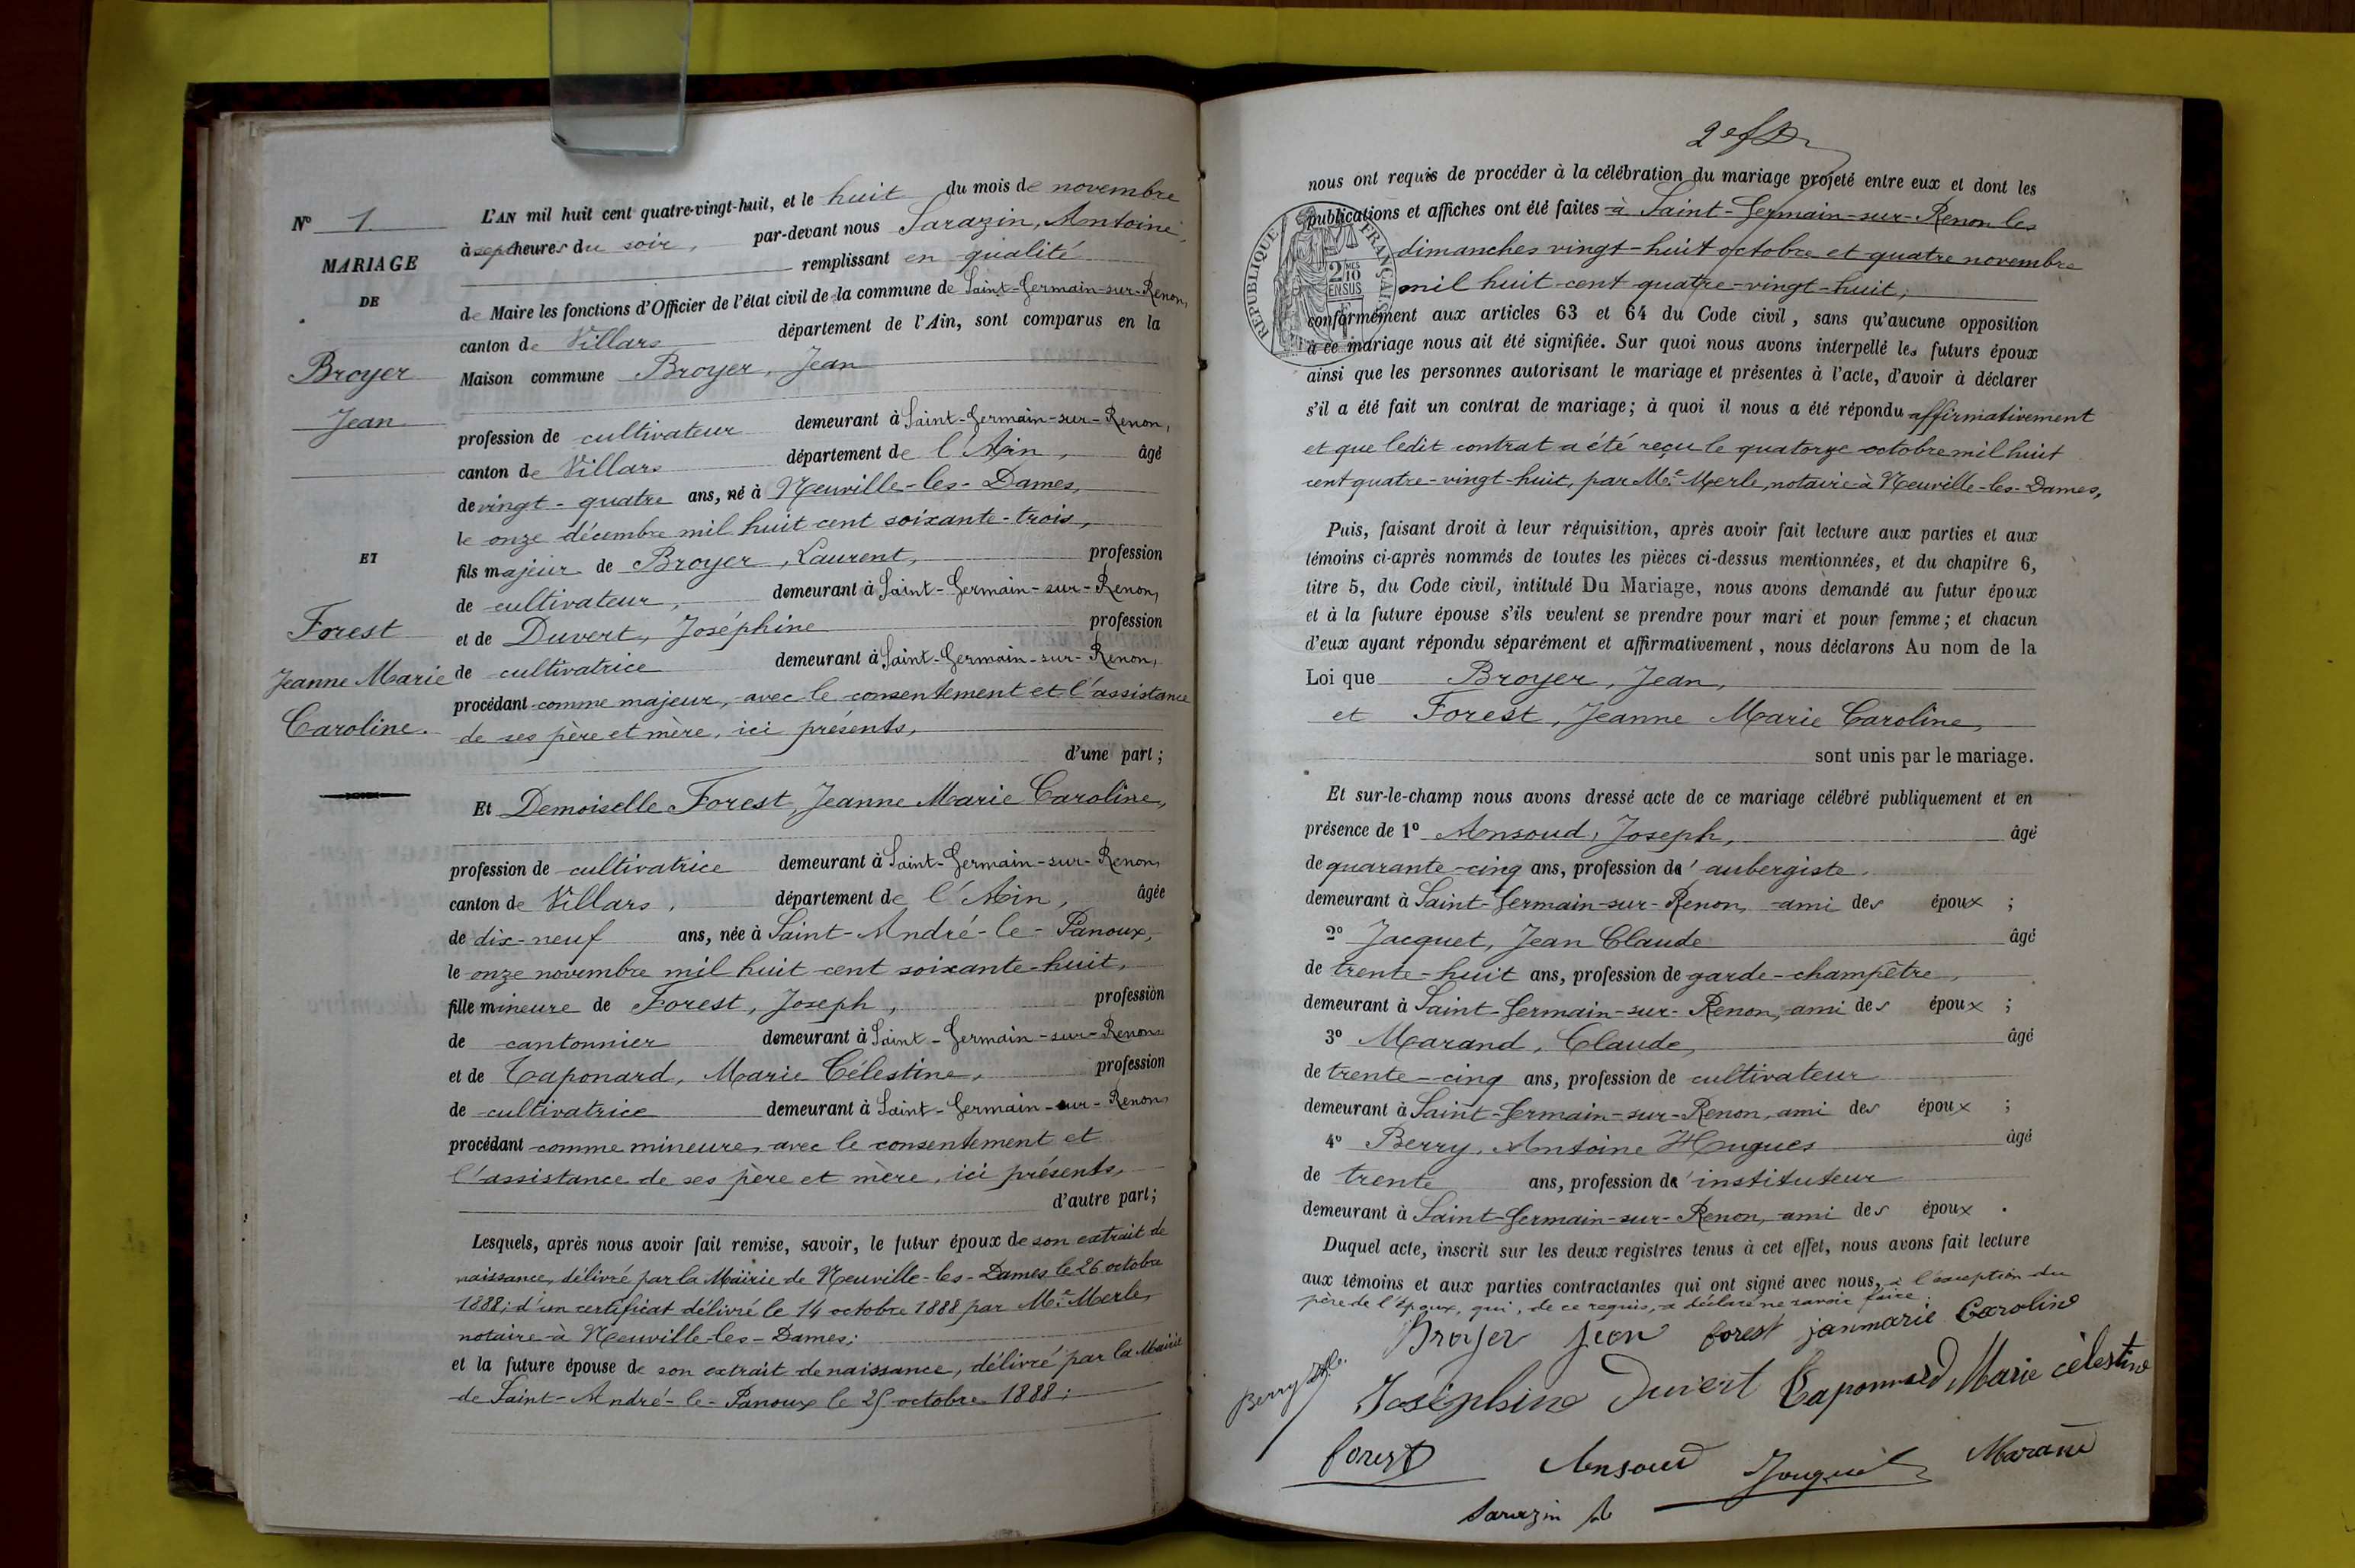 N° 1
MARIAGE
DE
Broyer
Jean
ET
Forest
Jeanne Marie
Caroline.
L'AN mil huit cent quatre-vingt-huit, et le huit du mois de novembre
à sept heures du soir, par-devant nous Sarazin, Antoine,
remplissant en qualité
de Maire les fonctions d'Officier de l'état civil de la commune de Saint-Germain-sur-Renon,
canton de Villars département de l'Ain, sont comparus en la
Maison commune Broyer, Jean
profession de cultivateur demeurant à Saint-Germain-sur-Renon,
canton de Villars département de l'Ain, âgé
de vingt-quatre ans, né à Neuville-les-Dames,
le onze décembre mil huit cent soixante-trois,
fils majeur de Broyer, Laurent, profession
de cultivateur, demeurant à Saint-Germain-sur-Renon,
et de Duvert, Joséphine profession
de cultivatrice demeurant à Saint-Germain-sur-Renon,
procédant comme majeur, avec le consentement et l'assistance
de ses père et mère, ici présents,
d'une part;
Et Demoiselle Forest, Jeanne Marie Caroline,
profession de cultivatrice demeurant à Saint-Germain-sur-Renon,
canton de Villars, département de l'Ain, âgée
de dix-neuf ans, née à Saint-André-le-Panoux,
le onze novembre mil huit cent soixante-huit,
fille mineure de Forest, Joseph, profession
de cantonnier demeurant à Saint-Germain-sur-Renon
et de Taponard, Marie Célestine, profession
de cultivatrice demeurant à Saint-Germain-sur-Renon,
procédant comme mineure, avec le consentement et
l'assistance de ses père et mère, ici présents,
d'autre part;
Lesquels, après nous avoir fait remise, savoir, le futur époux de son extrait de
naissance, délivré par la Mairie de Neuville-les-Dames le 26 octobre
1888; d'un certificat délivré le 14 octobre 1888 par Me Merle,
notaire à Neuville-les-Dames;
et la future épouse de son extrait de naissance, délivré par la Mairie
de Saint-André-le-Panoux le 25 octobre 1888;
nous ont requis de procéder à la célébration du mariage projeté entre eux et dont les
publications et affiches ont été faites à Saint-Germain-sur-Renon les
dimanches vingt-huit octobre et quatre novembre
mil huit cent quatre-vingt-huit,
RÉPUBLIQUE FRANÇAISE
2 MES
10
EN SUS
conformément aux articles 63 et 64 du Code civil, sans qu'aucune opposition
à ce mariage nous ait été signifiée. Sur quoi nous avons interpellé les futurs époux
ainsi que les personnes autorisant le mariage et présentes à l'acte, d'avoir à déclarer
s'il a été fait un contrat de mariage; à quoi il nous a été répondu affirmativement
et que ledit contrat a été reçu le quatorze octobre mil huit
cent quatre-vingt-huit, par Me Merle, notaire à Neuville-les-Dames,
Puis, faisant droit à leur réquisition, après avoir fait lecture aux parties et aux
témoins ci-après nommés de toutes les pièces ci-dessus mentionnées, et du chapitre 6,
titre 5, du Code civil, intitulé Du Mariage, nous avons demandé au futur époux
et à la future épouse s'ils veulent se prendre pour mari et pour femme; et chacun
d'eux ayant répondu séparément et affirmativement, nous déclarons Au nom de la
Loi que Broyer, Jean,
et Forest, Jeanne Marie Caroline,
sont unis par le mariage.
Et sur-le-champ nous avons dressé acte de ce mariage célébré publiquement et en
présence de 1° Ansoud, Joseph, âgé
de quarante-cinq ans, profession d'aubergiste
demeurant à Saint-Germain-sur-Renon, ami des époux ;
2° Jacquet, Jean Claude âgé
de trente-huit ans, profession de garde-champêtre,
demeurant à Saint-Germain-sur-Renon, ami des époux ;
3° Marand, Claude, âgé
de trente-cinq ans, profession de cultivateur
demeurant à Saint-Germain-sur-Renon, ami des époux ;
4° Berry, Antoine Hugues âgé
de trente ans, profession d'instituteur
demeurant à Saint-Germain-sur-Renon, ami des époux .
Duquel acte, inscrit sur les deux registres tenus à cet effet, nous avons fait lecture
aux témoins et aux parties contractantes qui ont signé avec nous, à l'exception du
père de l'époux, qui, de ce requis, a déclaré ne savoir faire.
Broyer jean forest janmarie Caroline
Berry
Joséphine Duvert Taponard Marie célestine
forest Ansoud Jacquet Marand
Sarazin